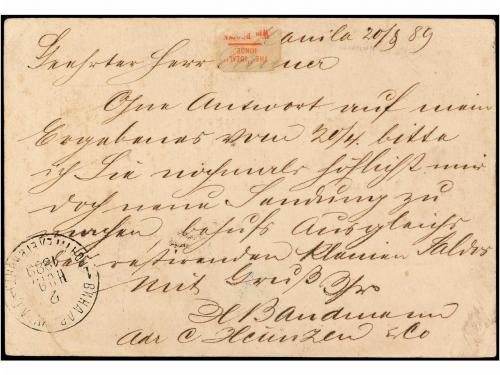 Manila 20/8 89
Geehrter Herr
Ohne Antwort auf mein
Ergebenes vom 20/4. bitte
ich Sie nochmals höflichst mir
doch neue Sendung zu
machen behufs Ausgleichs
des restirenden kleinen Saldos
Mit Gruß Ihr
H Bandmann
adr C. Heinszen & Co
THE "IDEAL"
HINGE